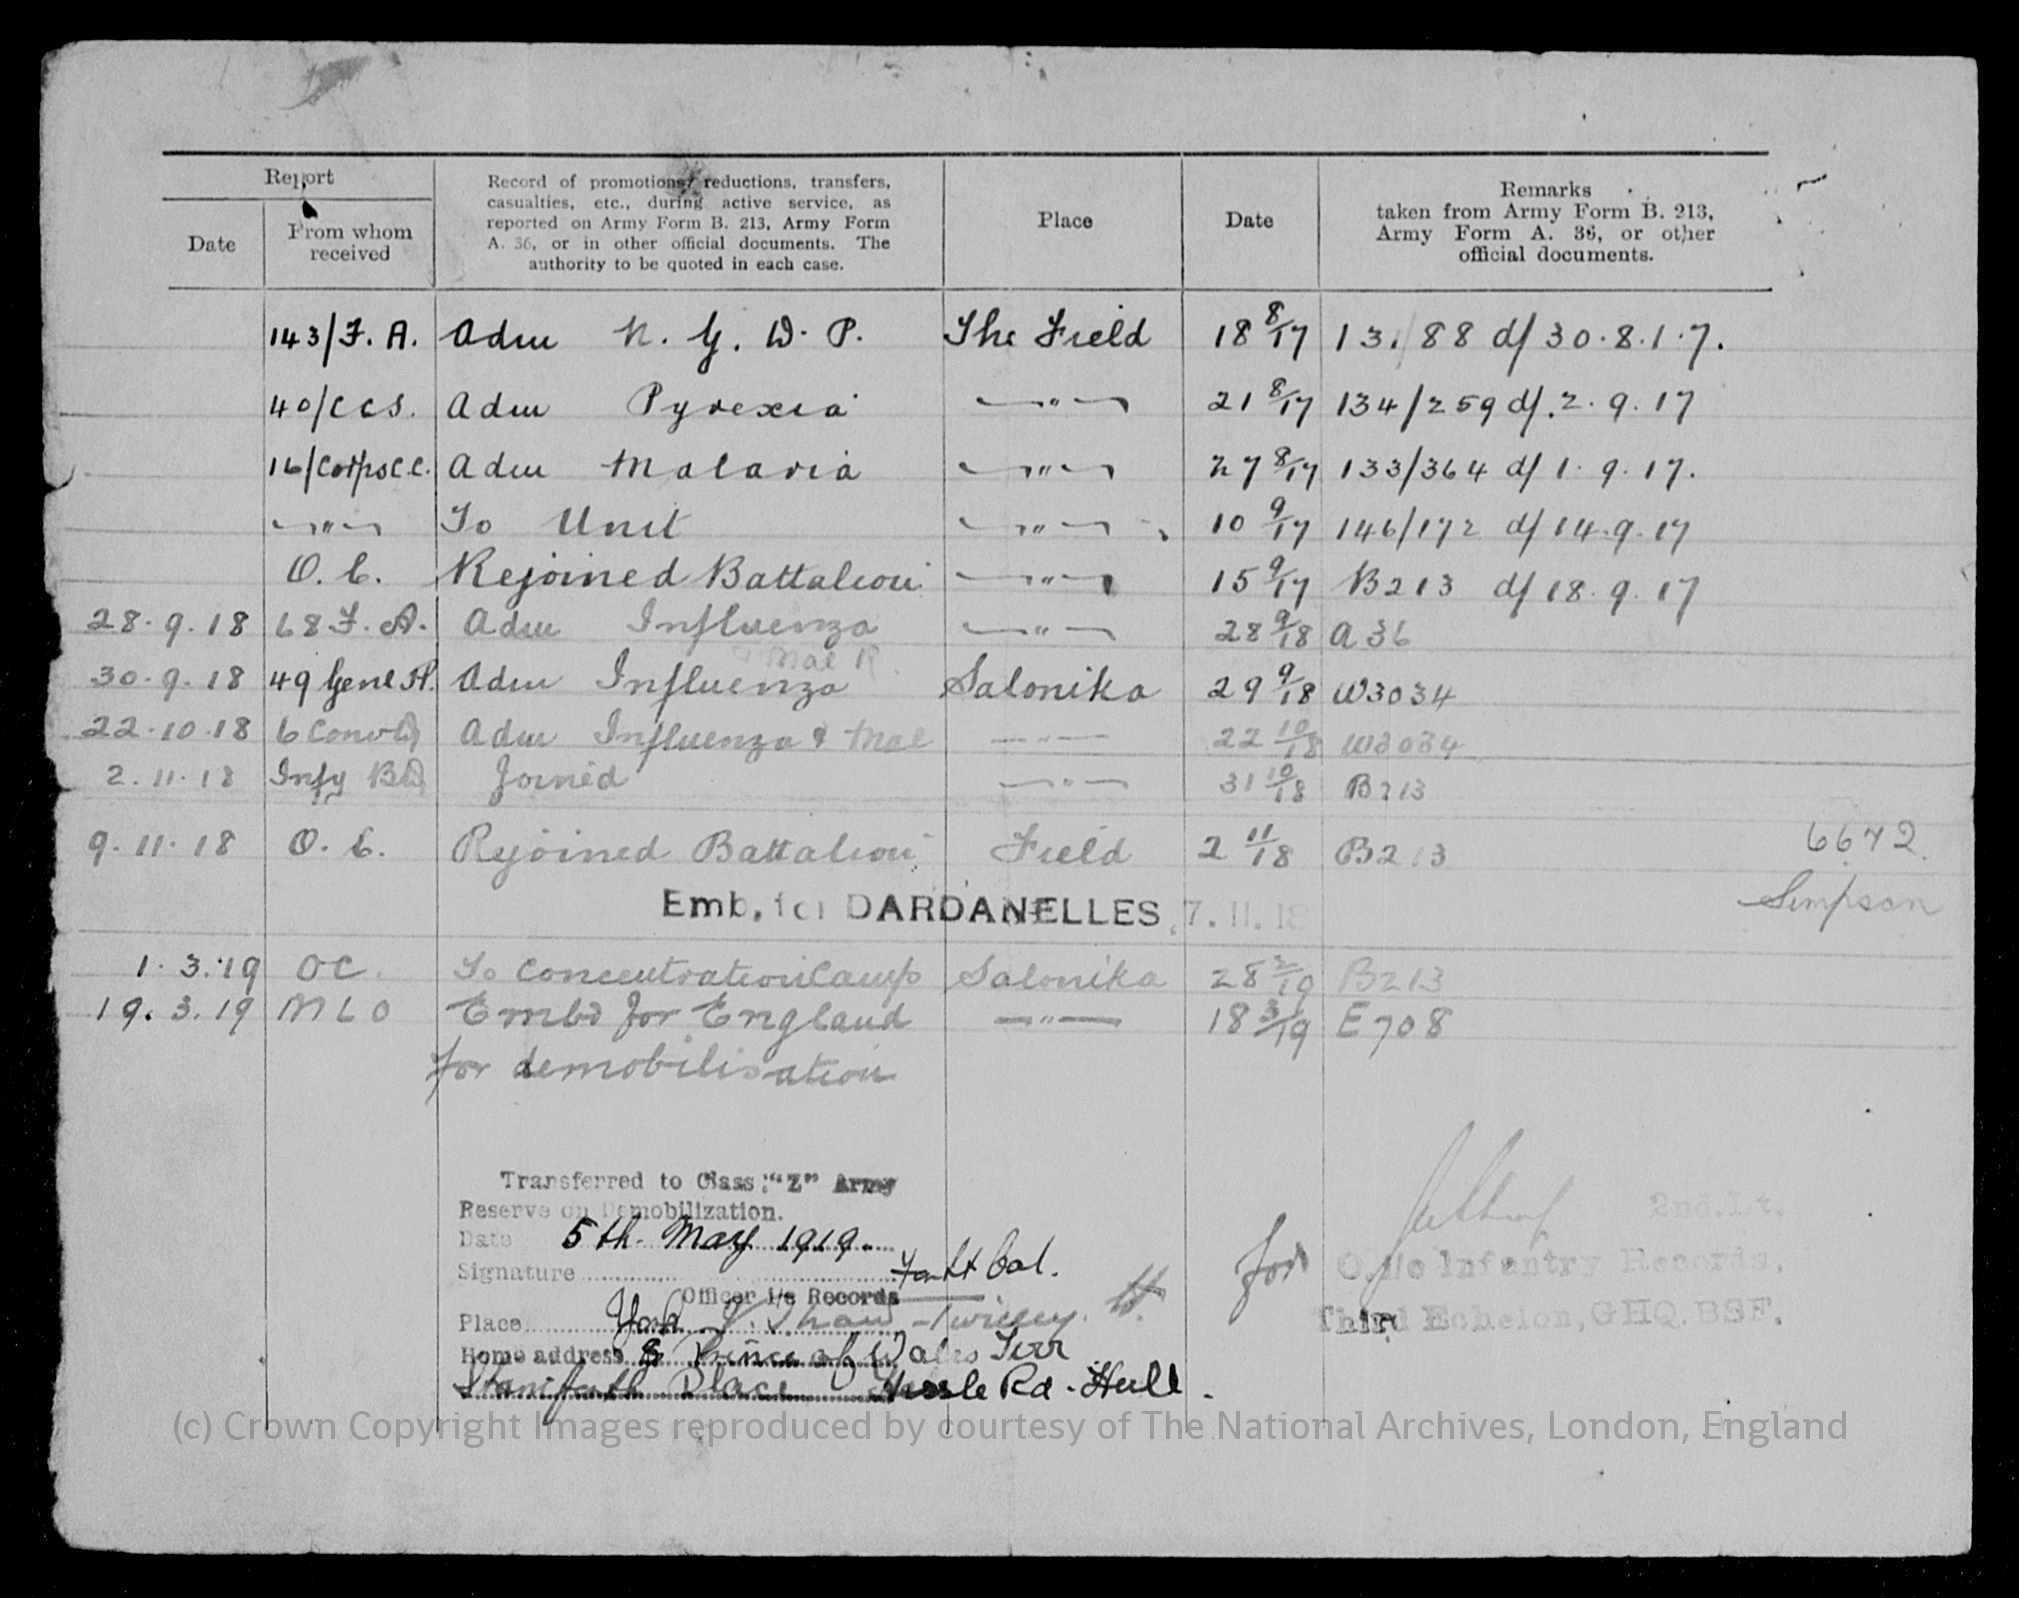 Report
Date
From whom received
Record of promotions, reductions, transfers,
casualties, etc., during active service, as
reported on Army Form B. 213, Army Form
A. 36, or in other official documents. The
authority to be quoted in each case.
Place
Date
Remarks
taken from Army Form B. 213,
Army Form A. 36, or other
official documents.
143/F. A. Adm N. Y. D. P. The Field 18 8/17 13./88 d/ 30.8.1.7.
40/CCS. Adm Pyrexia —"— 21 8/17 134/259 d/. 2.9.17
16/Corps C.C. Adm Malaria —"— 27 8/17 133/364 d/ 1.9.17.
—"— To Unit —"— 10 9/17 146/172 d/ 14.9.17
O. C. Rejoined Battalion —"— 15 9/17 B213 d/ 18.9.17
28.9.18 68 F. A. Adm Influenza —"— 28 9/18 A36
30.9.18 49 Genl H. Adm Influenza Salonika 29 9/18 W3034
22.10.18 6 Conv Adm Influenza & Mal —"— 22 10/18 W3034
2.11.18 Infy Joined —"— 31 10/18 B213
9.11.18 O. C. Rejoined Battalion Field 2 11/18 B213
6672
Simpson
Emb. for DARDANELLES 7.11.18
1.3.19 OC. To Concentration Camp Salonika 28 2/19 B213
19.3.19 MLO Embd for England —"— 18 3/19 E708
for demobilisation
Transferred to Class "Z" Army
Reserve on Demobilization.
Date 5th May 1919.
Signature
Officer i/c Records
Place York
Home address 8 Prince of Wales Terr
Staniforth Place Hessle Rd. Hull.
2nd. Lt.
for O. i/c Infantry Records,
Third Echelon, GHQ. BSF.
(c) Crown Copyright Images reproduced by courtesy of The National Archives, London, England